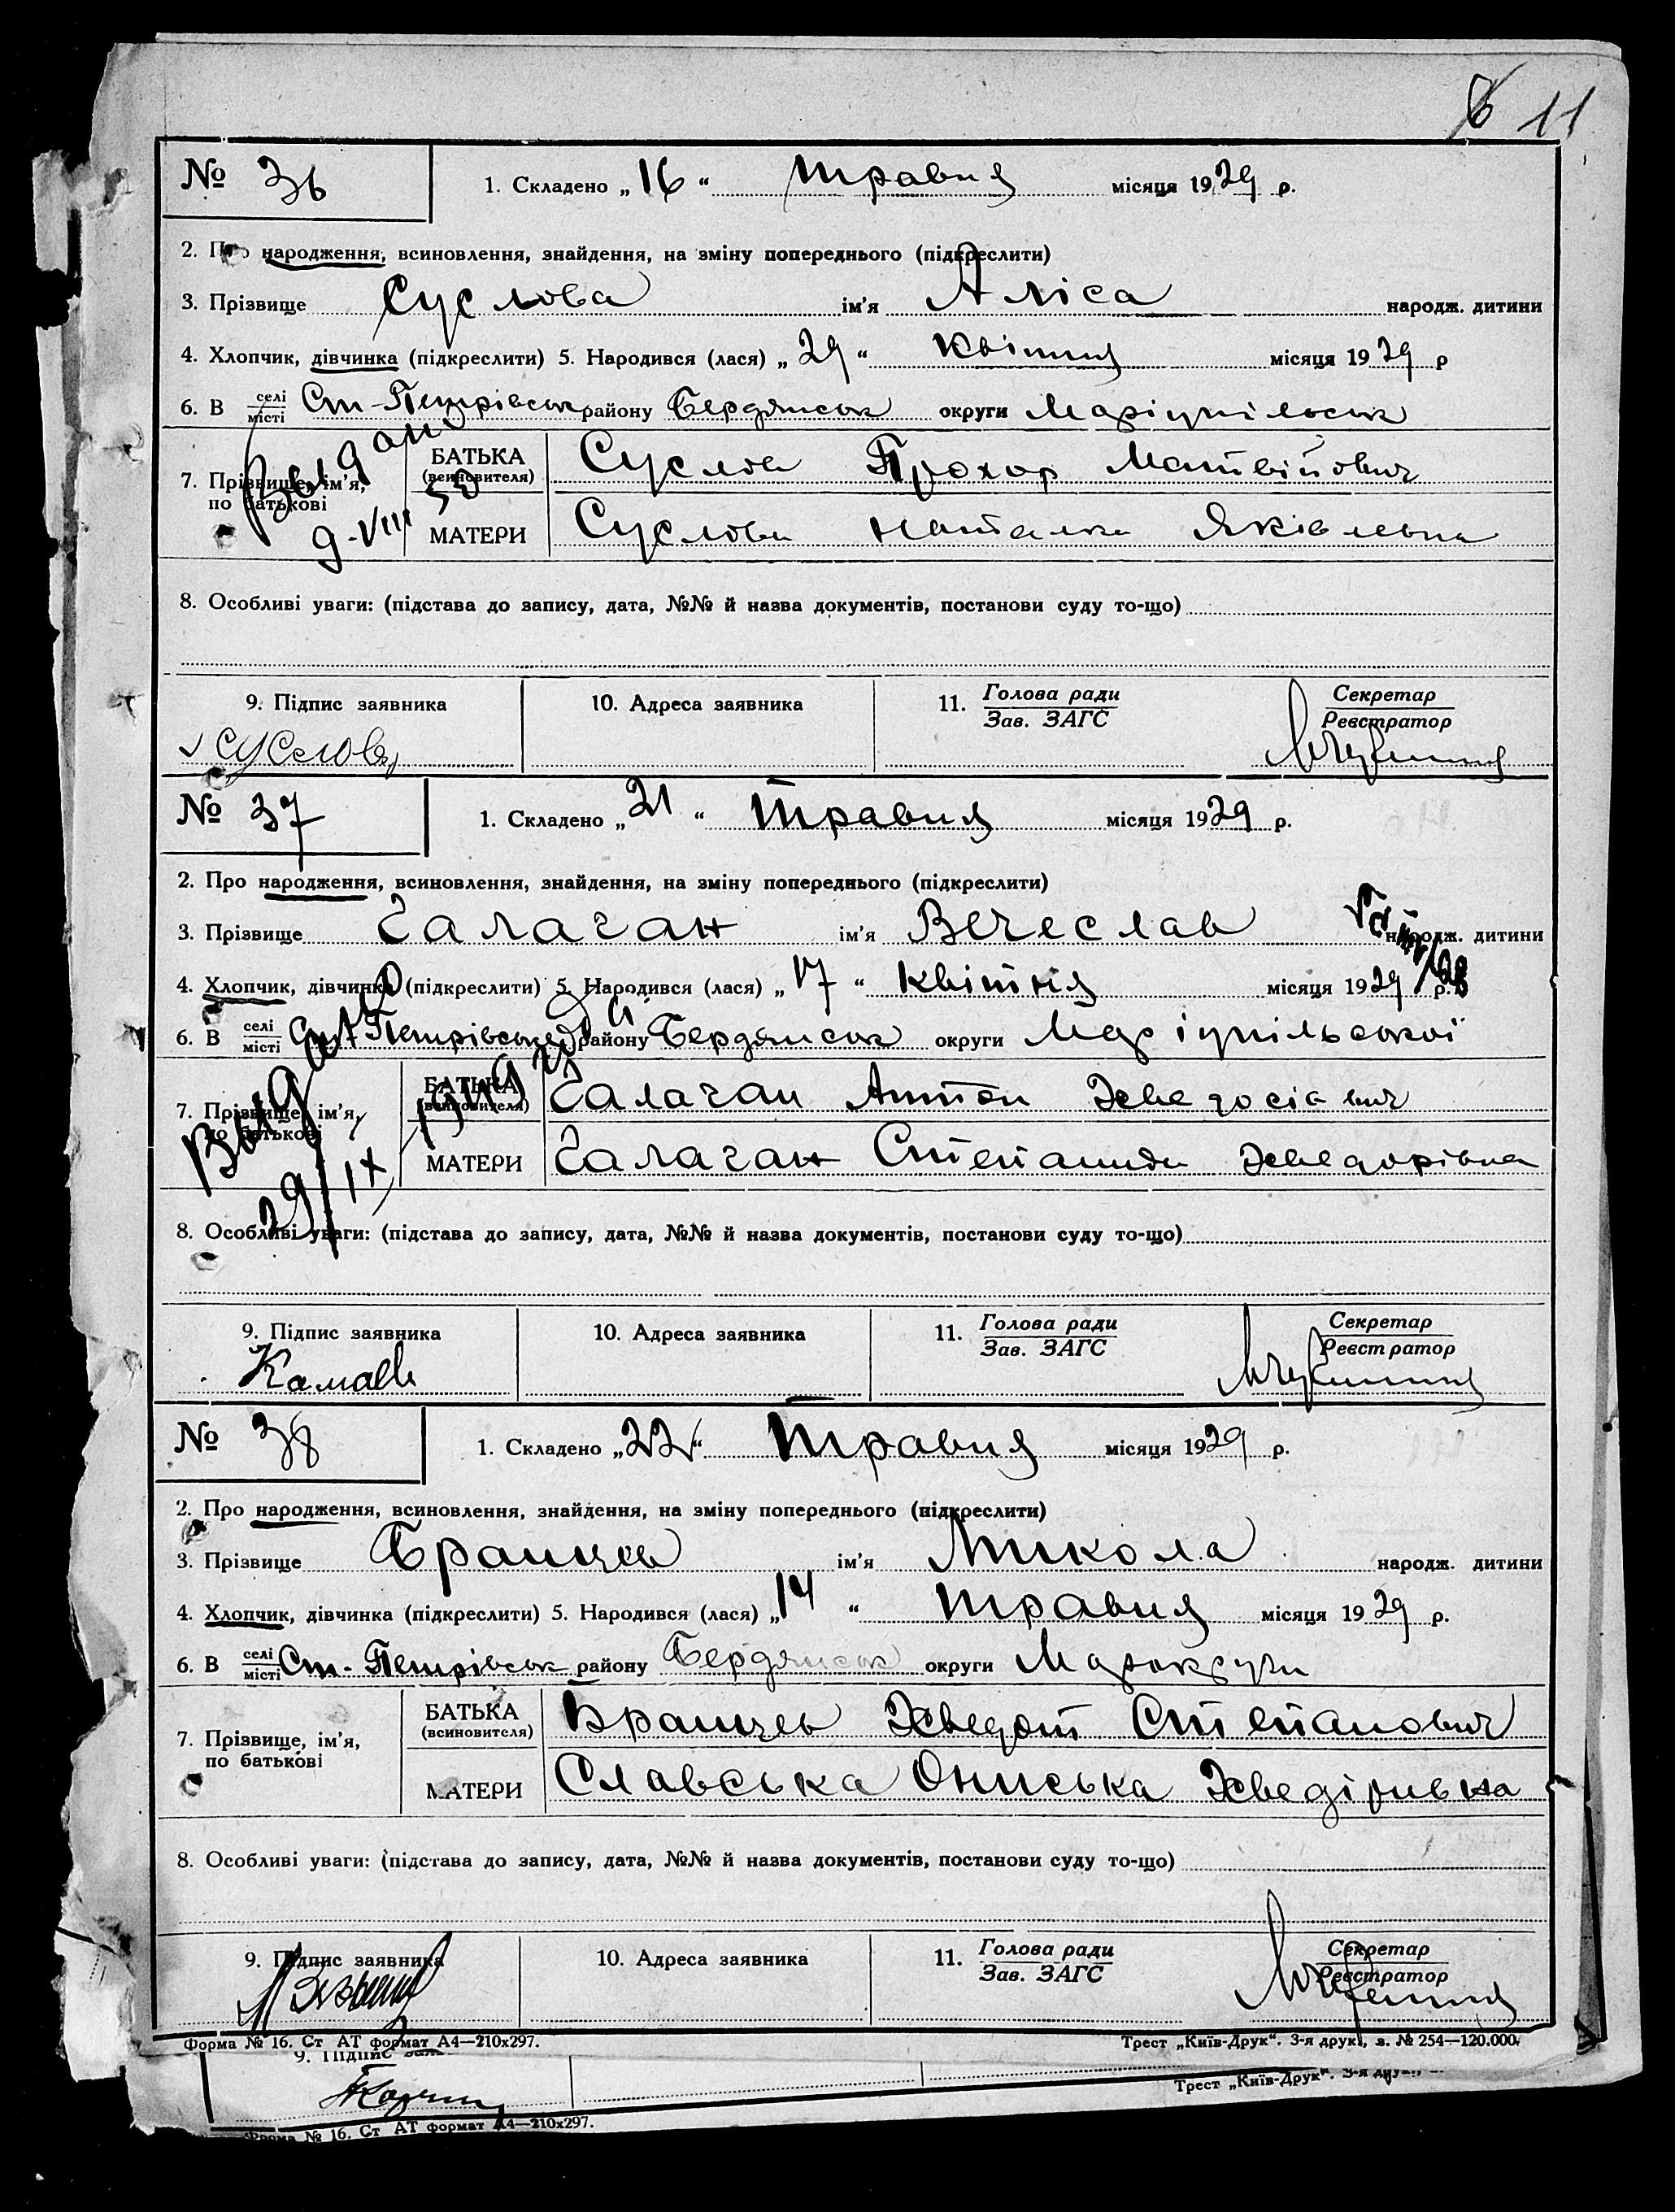 6 11
№ 36 1. Складено „16“ травня місяця 1929 р.
2. Про народження, всиновлення, знайдення, на зміну попереднього (підкреслити)
3. Прізвище Суслова ім'я Аліса народж. дитини
4. Хлопчик, дівчинка (підкреслити) 5. Народився (лася) „29“ квітня місяця 1929 р
6. В селі місті Ст-Петрівськ району Бердянськ округи Маріупільськ
7. Прізвище, ім'я, по батькові БАТЬКА (всиновителя) Суслов Прохор Матвійович
МАТЕРИ Суслова Наталка Яківлевна
9-VIII 50
8. Особливі уваги: (підстава до запису, дата, №№ й назва документів, постанови суду то-що)
9. Підпис заявника 10. Адреса заявника 11. Голова ради Зав. ЗАГС Секретар Реєстратор
Суслова
№ 37 1. Складено „21“ травня місяця 1929 р.
2. Про народження, всиновлення, знайдення, на зміну попереднього (підкреслити)
3. Прізвище Галаган ім'я Вечеслав народж. дитини
4. Хлопчик, дівчинка (підкреслити) 5. Народився (лася) „17“ квітня місяця 1929 р.
6. В селі місті Ст-Петрівськ району Бердянськ округи Маріупільської
7. Прізвище, ім'я, по батькові БАТЬКА (всиновителя) Галаган Антон Хведосіевич
МАТЕРИ Галаган Степанида Хведорівна
29/IX
8. Особливі уваги: (підстава до запису, дата, №№ й назва документів, постанови суду то-що)
9. Підпис заявника 10. Адреса заявника 11. Голова ради Зав. ЗАГС Секретар Реєстратор
№ 38 1. Складено „22“ травня місяця 1929 р.
2. Про народження, всиновлення, знайдення, на зміну попереднього (підкреслити)
3. Прізвище Бранцев ім'я Микола народж. дитини
4. Хлопчик, дівчинка (підкреслити) 5. Народився (лася) „14“ травня місяця 1929 р.
6. В селі місті Ст-Петрівськ району Бердянськ округи
7. Прізвище, ім'я, по батькові БАТЬКА (всиновителя) Бранцев Хведот Степанович
МАТЕРИ Славська Ониська Хведіривна
8. Особливі уваги: (підстава до запису, дата, №№ й назва документів, постанови суду то-що)
9. Підпис заявника 10. Адреса заявника 11. Голова ради Зав. ЗАГС Секретар Реєстратор
Форма № 16. Ст АТ формат А4—210х297. Трест „Київ-Друк“. 3-я друк., з. № 254—120.000.
9. Підпис
Трест „Київ-Друк“. 3-я друк.
Форма № 16. Ст АТ формат А4—210х297.